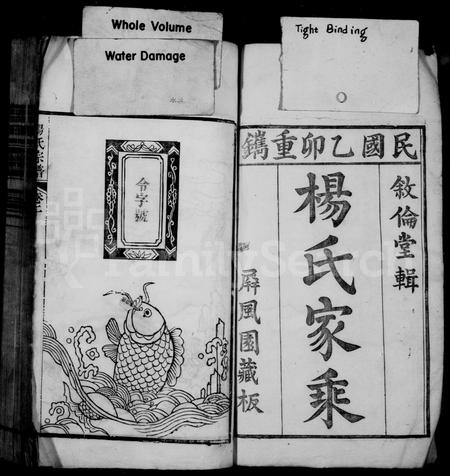 Whole Volume
Water Damage
水泆
Tight Binding
民國乙卯重鐫
敘倫堂輯
楊氏家乘
屏風園藏板
令字號
楊氏宗譜
FamilySearch